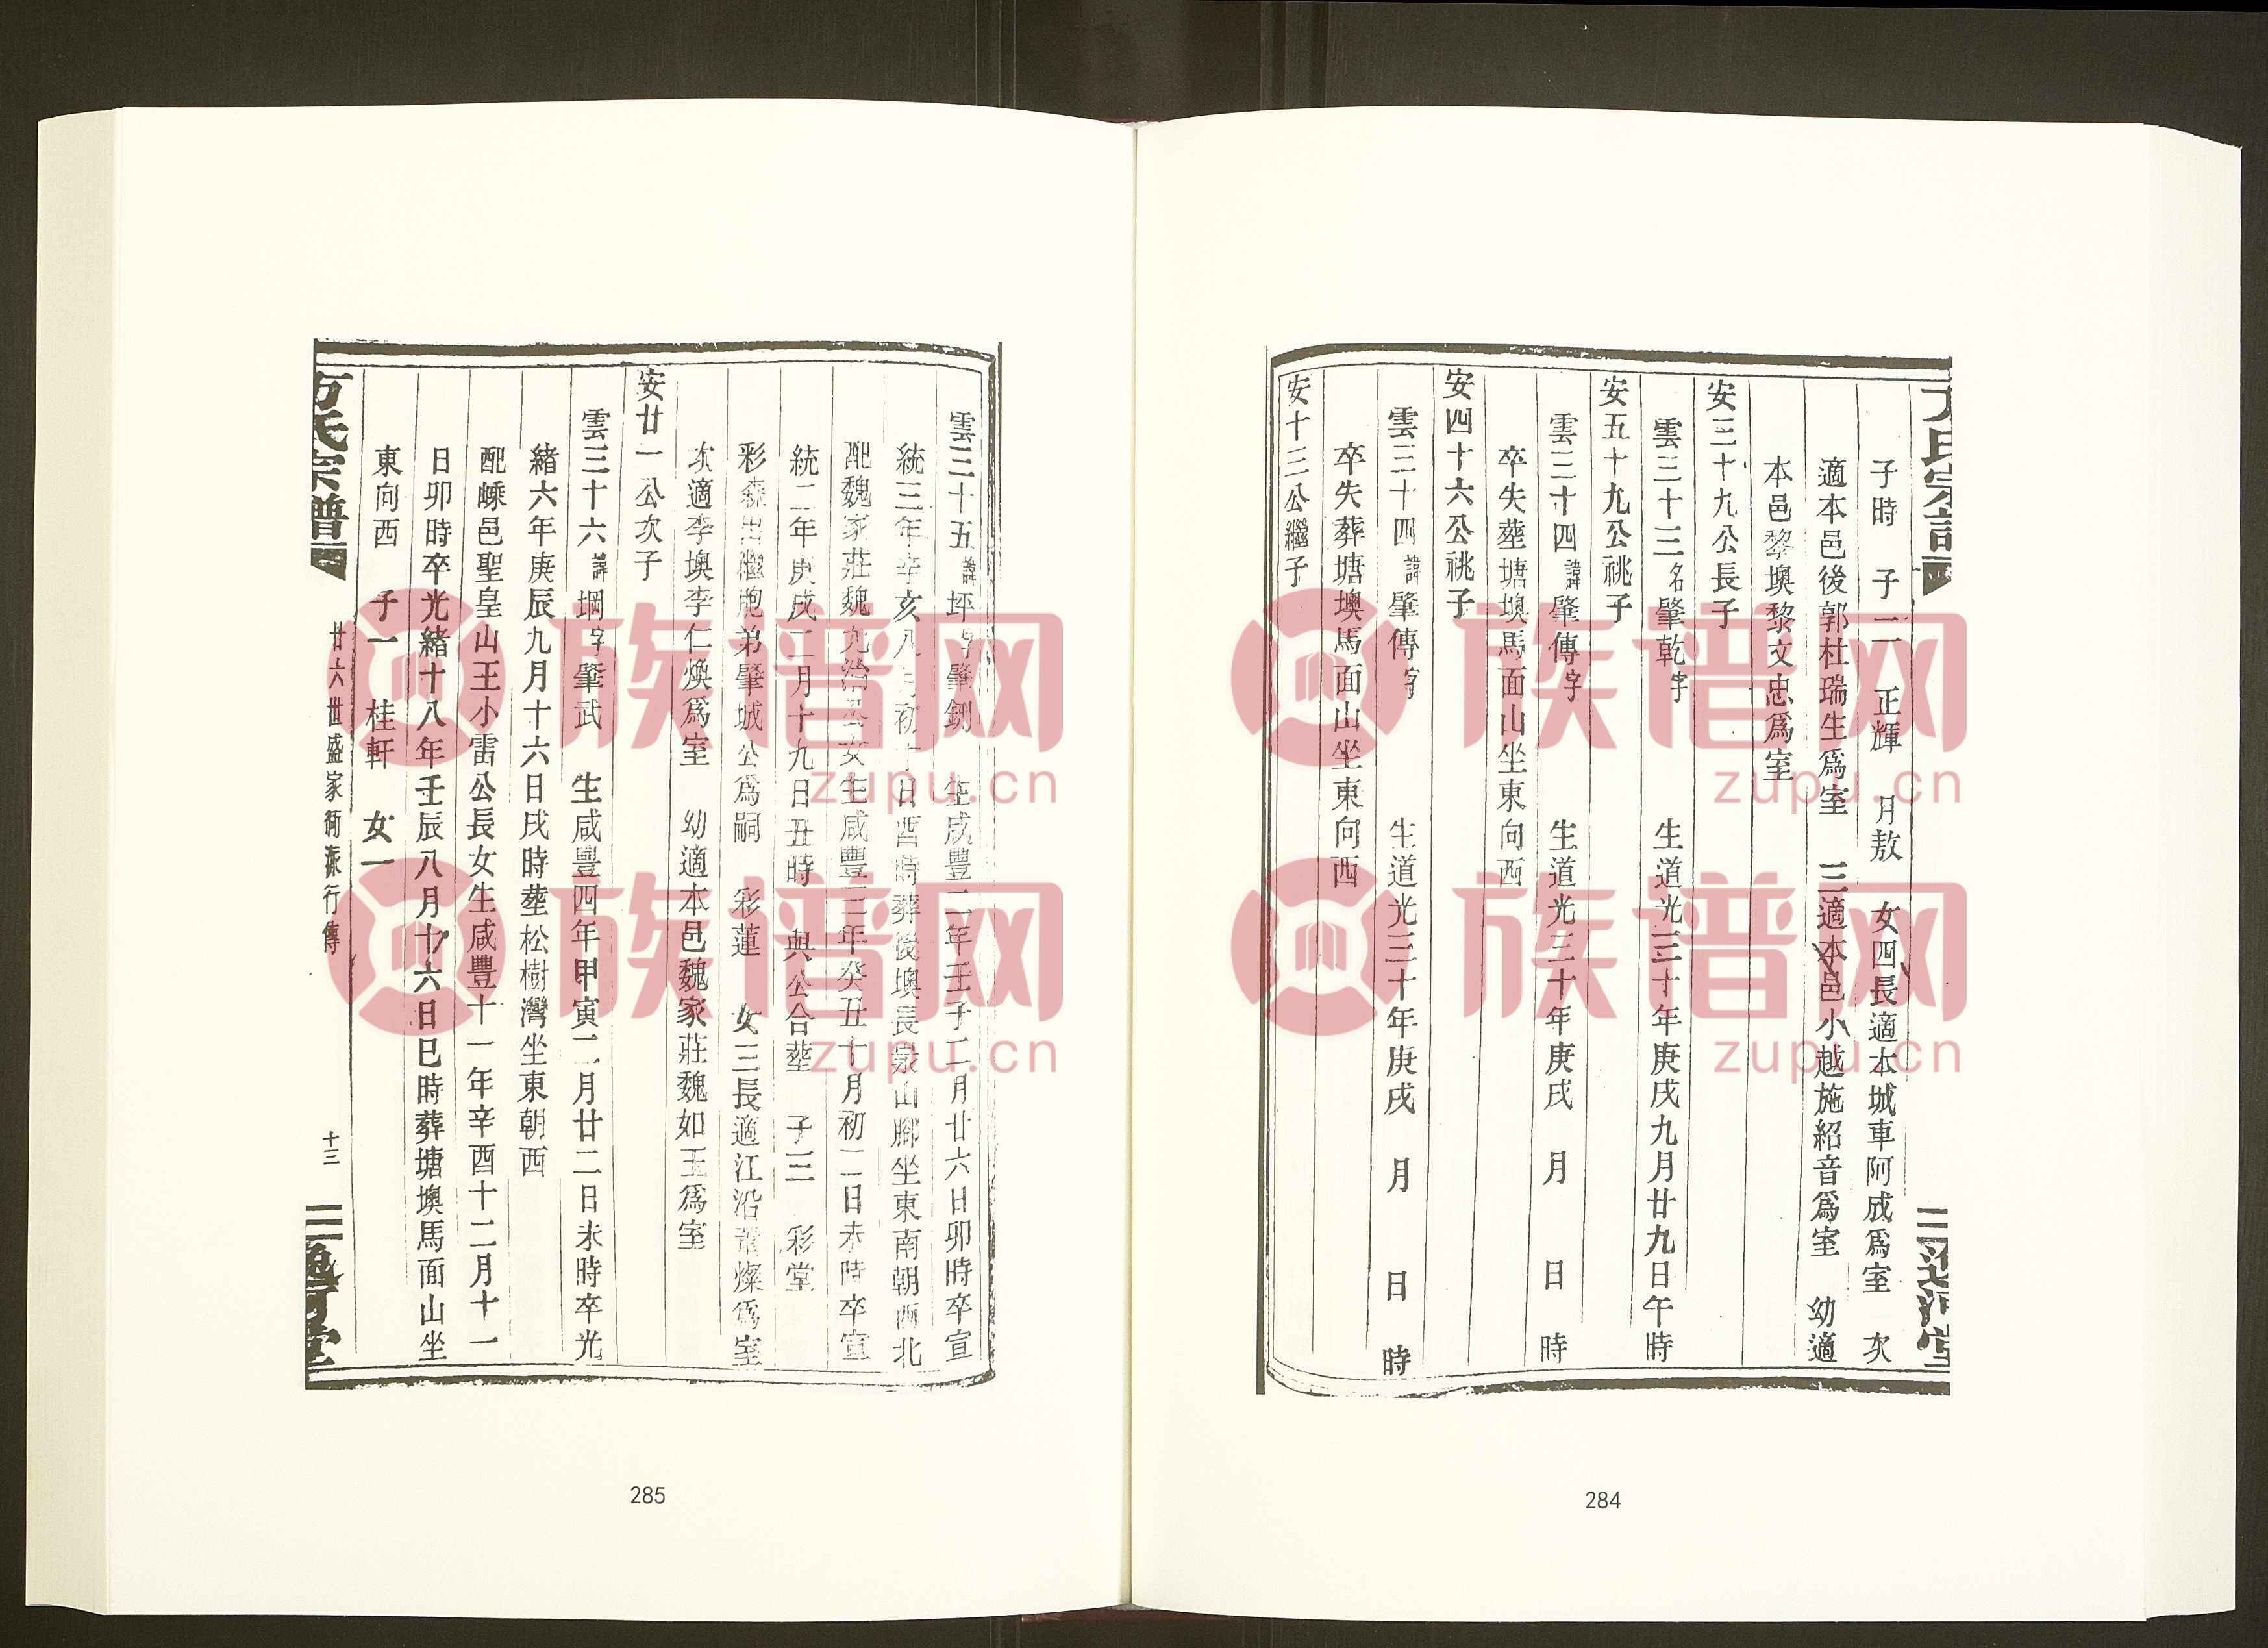 子時　子二　正輝　月敖　女四長適本城車阿成爲室　次
適本邑後郭杜瑞生爲室　三適本邑小越施紹音爲室　幼適
本邑黎墺黎文忠爲室
安三十九公長子
雲三十三名肇乾字　生道光三十年庚戌九月廿九日午時
安五十九公祧子
雲三十四諱肇傳字　生道光三十年庚戌　月　日　時
卒失葬塘墺馬面山坐東向西
安四十六公祧子
雲三十四諱肇傳字　生道光三十年庚戌　月　日　時
卒失葬塘墺馬面山坐東向西
安十三公繼子
284
雲三十五諱坪字肇釗　生咸豐二年壬子二月廿六日卯時卒宣
統三年辛亥八月初十日酉時葬後墺長山腳坐東南朝西北
配魏家莊魏女生咸豐三年癸丑十月初二日未時卒宣
統二年庚戌二月十九日丑時　與公合塟　子三　彩堂
彩森出繼胞弟肇城公爲嗣　彩蓮　女三長適江沿燦爲室
次適李墺李仁煥爲室　幼適本邑魏家莊魏如玉爲室
安廿一公次子
雲三十六諱堈字肇武　生咸豐四年甲寅二月廿二日未時卒光
緒六年庚辰九月十六日戌時塟松樹灣坐東朝西
配嵊邑聖皇山王小雷公長女生咸豐十一年辛酉十二月十一
日卯時卒光緒十八年壬辰八月十六日巳時葬塘墺馬面山坐
東向西　子一　桂軒　女一
方氏宗譜　廿六世盛家衕派行傳　十三
285
族谱网
zupu.cn
族谱网
zupu.cn
族谱网
zupu.cn
族谱网
zupu.cn